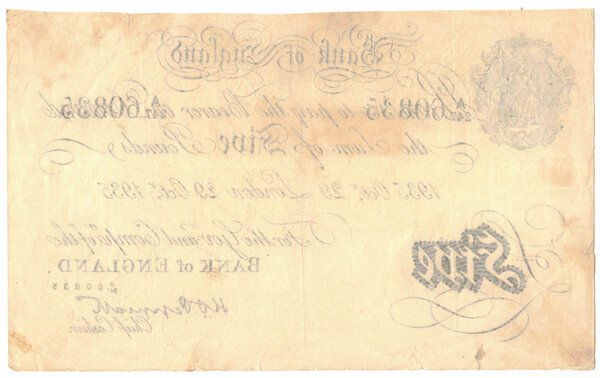 Bank of England
60835 to pay the Bearer on Demand 60835
the Sum of Five Pounds
1935 Oct. 29 London 29 Oct. 1935
For the Gov.r and Comp.a of the
BANK of ENGLAND.
Five
60835
K.O. Peppiatt
Chief Cashier.